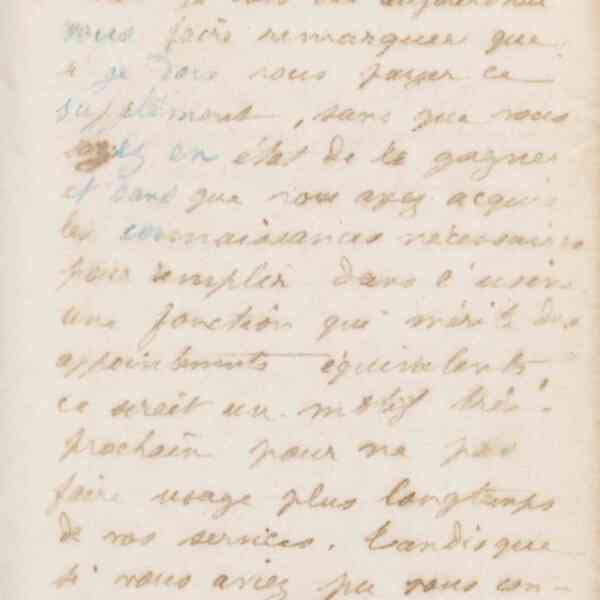 vous faire remarquer que
si je dois vous payer ce
supplément, sans que vous
soyez en état de le gagner
et sans que vous ayez acquis
les connaissances nécessaires
pour remplir dans l'usine
une fonction qui mérite des
appointements équivalents
ce serait un motif très
prochain pour ne pas
faire usage plus longtemps
de vos services. Tandis que
si vous aviez pu vous con-